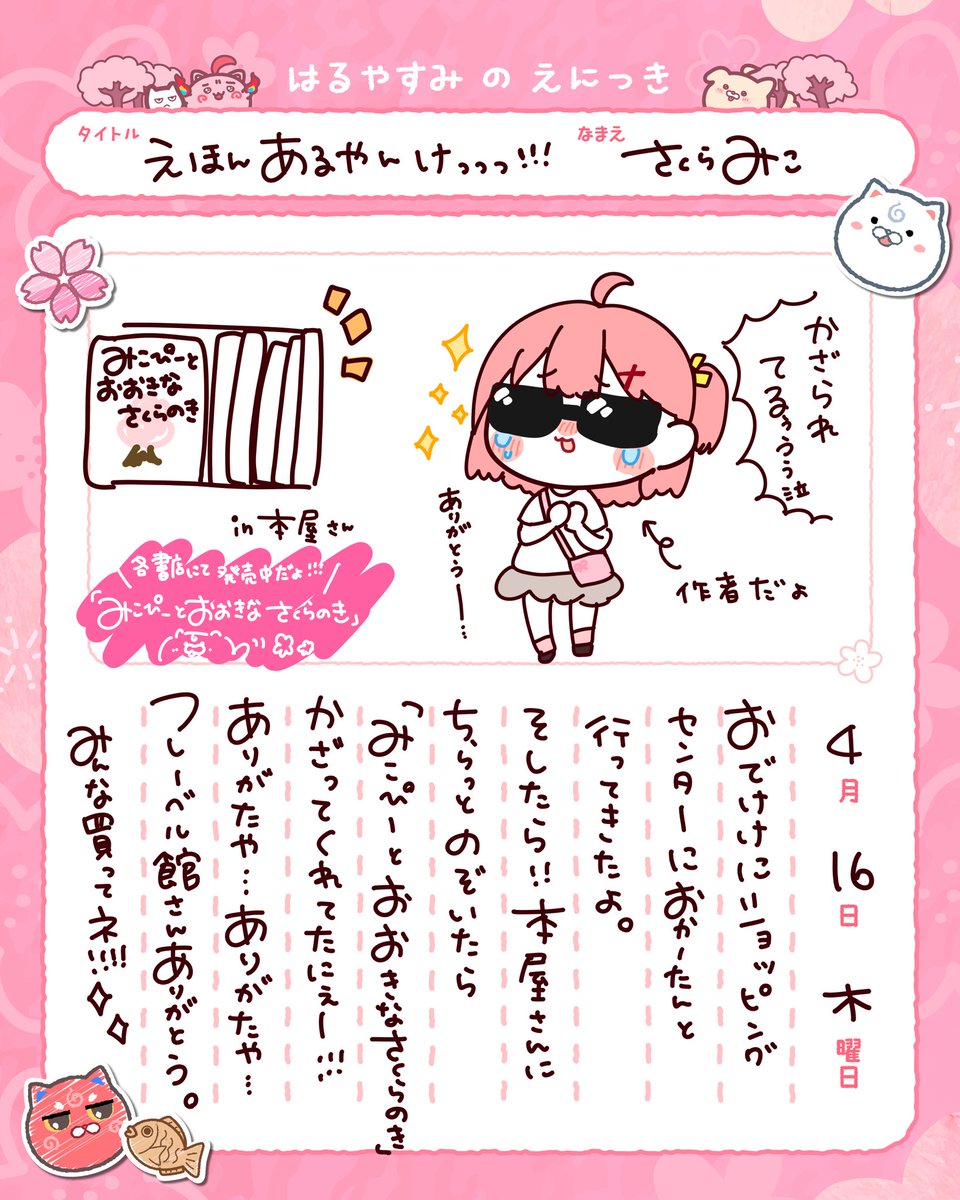 はるやすみ の えにっき
タイトル
えほん あるやん けっっっ!!!
なまえ
さくらみこ
みこぴーと
おおきな
さくらのき
in 本屋さん
各書店にて 発売中だよ!!!
「みこぴーとおおきな さくらのき」
かざられ
てるぅぅぅ泣
ありがとぅー…
作者だよ
4月 16日 木曜日
おでけけにショッピング
センターにおかーたんと
行ってきたよ。
そしたら!! 本屋さんに
ちらっとのぞいたら
「みこぴーとおおきなさくらのき」
かざってくれてたにぇー!!!
ありがたや…ありがたや…
フレーベル館さんありがとう。
みんな買ってネ!!!!